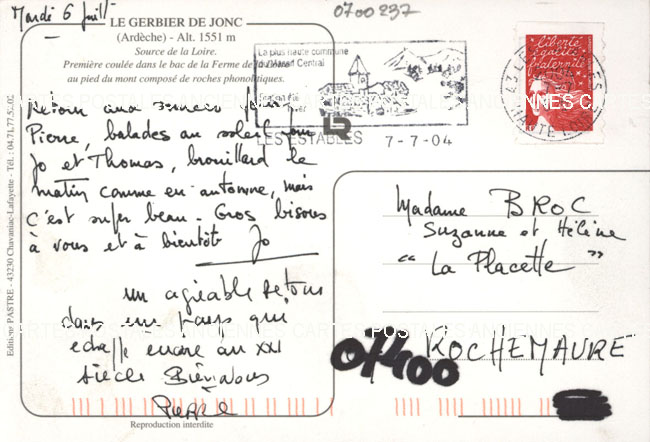 Mardi 6 juill
0700 237
LE GERBIER DE JONC
(Ardèche) - Alt. 1551 m
Source de la Loire.
Première coulée dans le bac de la Ferme de la Loire
au pied du mont composé de roches phonolitiques.
La plus haute commune
du Massif Central
LES ESTABLES 7-7-04
liberté
égalité
fraternité
Retour aux sources pour
Pierre, balades au soleil pour
Jo et Thomas, brouillard le
matin comme en automne, mais
c'est super beau - Gros bisous
à vous et à bientôt Jo
un agréable retour
dans un pays qui
échappe encore au XXI
siècle Bien à vous
Pierre
Madame BROC
Suzanne et Hélène
“ La Placette ”
07400 ROCHEMAURE
Editions PASTRE - 43230 Chavaniac-Lafayette - Tél. : 04.71.77.52.02
Reproduction interdite
CARTES POSTALES ANCIENNES CARTES POSTALES ANCIENNES